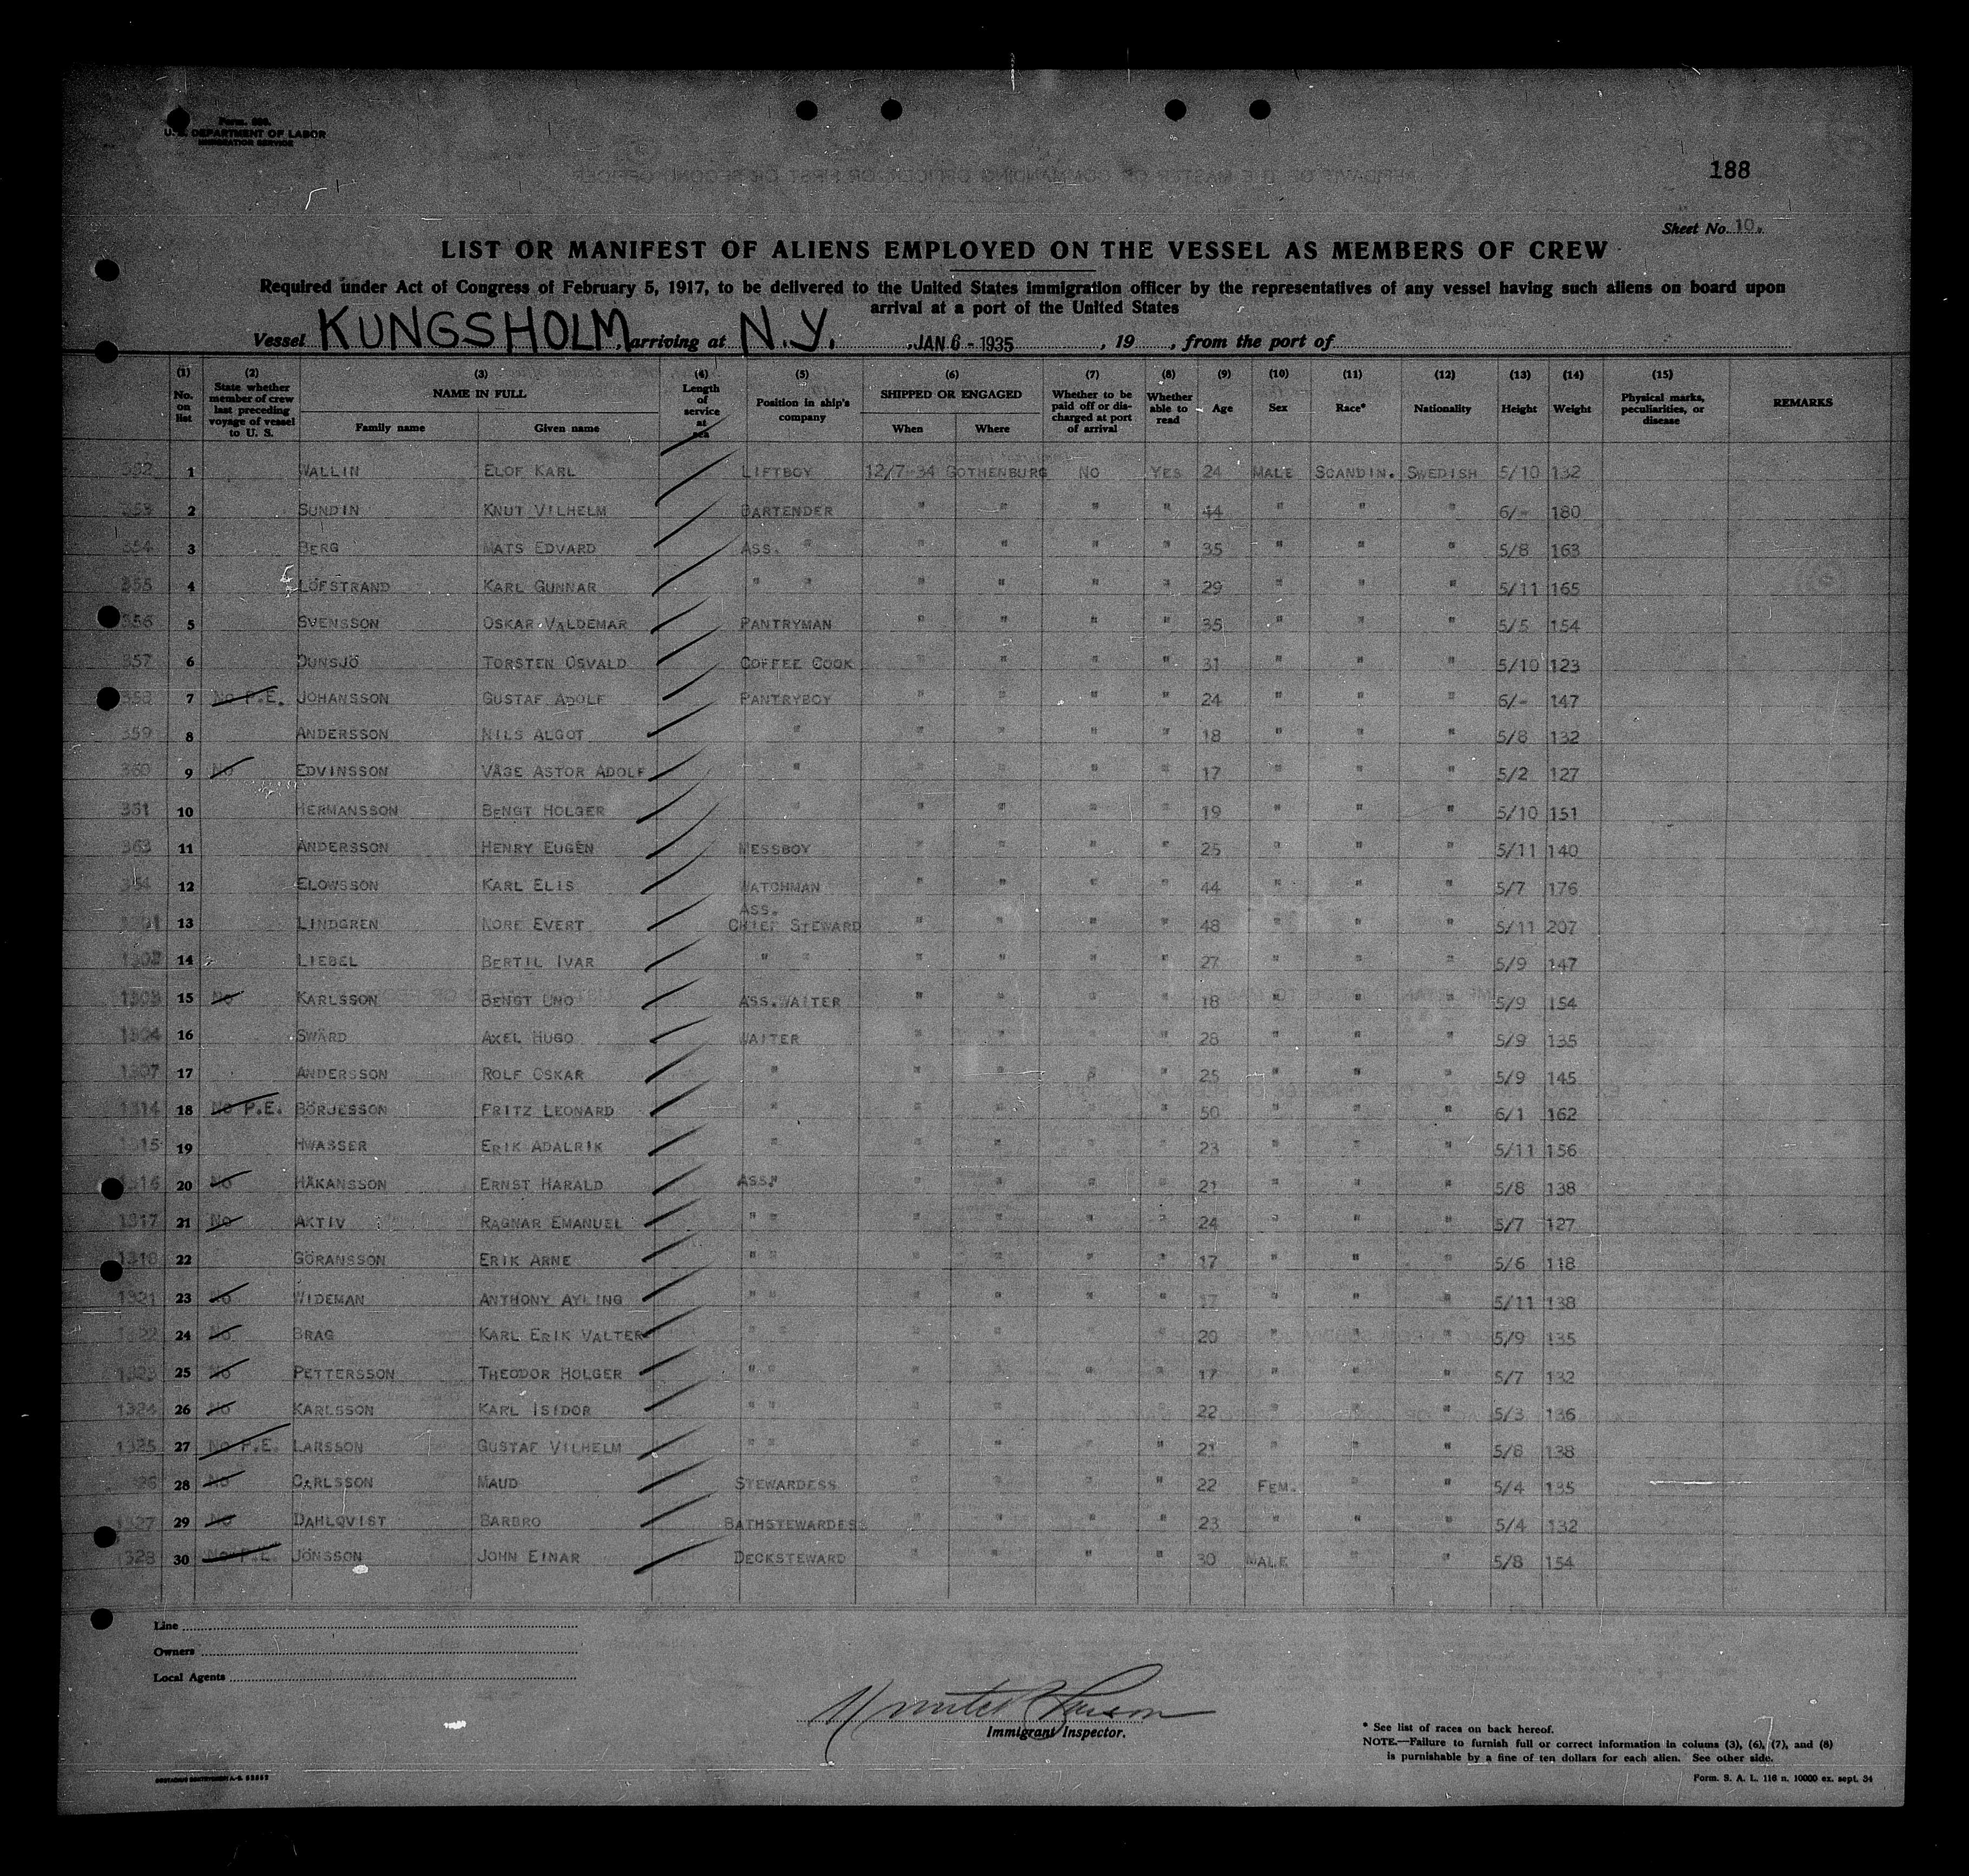 Form. 689.
U. S. DEPARTMENT OF LABOR
IMMIGRATION SERVICE
188
Sheet No. 10.
LIST OR MANIFEST OF ALIENS EMPLOYED ON THE VESSEL AS MEMBERS OF CREW
Required under Act of Congress of February 5, 1917, to be delivered to the United States immigration officer by the representatives of any vessel having such aliens on board upon
arrival at a port of the United States
Vessel KUNGSHOLM, arriving at N.Y. , JAN 6 - 1935 , 19 , from the port of
(1) No. on list (2) State whether member of crew last preceding voyage of vessel to U. S. (3) NAME IN FULL Family name Given name (4) Length of service at sea (5) Position in ship's company (6) SHIPPED OR ENGAGED When Where (7) Whether to be paid off or discharged at port of arrival (8) Whether able to read (9) Age (10) Sex (11) Race* (12) Nationality (13) Height (14) Weight (15) Physical marks, peculiarities, or disease REMARKS
352 1 WALLIN ELOF KARL LIFTBOY 12/7-34 GOTHENBURG NO YES 24 MALE SCANDIN. SWEDISH 5/10 132
353 2 SUNDIN KNUT VILHELM BARTENDER " " " " 44 " " " 6/- 180
354 3 BERG MATS EDVARD ASS. " " " " " 35 " " " 5/8 163
355 4 LÖFSTRAND KARL GUNNAR " " " " " " 29 " " " 5/11 165
356 5 SVENSSON OSKAR VALDEMAR PANTRYMAN " " " " 35 " " " 5/5 154
357 6 DUNSJÖ TORSTEN OSVALD COFFEE COOK " " " " 31 " " " 5/10 123
358 7 NO P.E. JOHANSSON GUSTAF ADOLF PANTRYBOY " " " " 24 " " " 6/- 147
359 8 ANDERSSON NILS ALGOT " " " " " 18 " " " 5/8 132
360 9 NO EDVINSSON VÅGE ASTOR ADOLF " " " " " 17 " " " 5/2 127
361 10 HERMANSSON BENGT HOLGER " " " " " 19 " " " 5/10 151
363 11 ANDERSSON HENRY EUGÈN MESSBOY " " " " 25 " " " 5/11 140
364 12 ELOWSSON KARL ELIS WATCHMAN " " " " 44 " " " 5/7 176
1301 13 LINDGREN NORE EVERT ASS. CHIEF STEWARD " " " " 48 " " " 5/11 207
1302 14 LIEBEL BERTIL IVAR " " " " " " 27 " " " 5/9 147
1303 15 NO KARLSSON BENGT UNO ASS.WAITER " " " " 18 " " " 5/9 154
1304 16 SWÄRD AXEL HUGO WAITER " " " " 28 " " " 5/9 135
1307 17 ANDERSSON ROLF OSKAR " " " " " 25 " " " 5/9 145
1314 18 NO P.E. BÖRJESSON FRITZ LEONARD " " " " " 50 " " " 6/1 162
1315 19 HWASSER ERIK ADALRIK " " " " " 23 " " " 5/11 156
1316 20 NO HÅKANSSON ERNST HARALD ASS." " " " " 21 " " " 5/8 138
1317 21 NO AKTIV RAGNAR EMANUEL " " " " " " 24 " " " 5/7 127
1318 22 GÖRANSSON ERIK ARNE " " " " " " 17 " " " 5/6 118
1321 23 NO WIDEMAN ANTHONY AYLING " " " " " " 17 " " " 5/11 138
1322 24 NO BRAG KARL ERIK VALTER " " " " " 20 " " " 5/9 135
1323 25 NO PETTERSSON THEODOR HOLGER " " " " " " 17 " " " 5/7 132
1324 26 NO KARLSSON KARL ISIDOR " " " " " " 22 " " " 5/3 136
1325 27 NO P.E. LARSSON GUSTAF VILHELM " " " " " " 21 " " " 5/8 138
1326 28 NO CARLSSON MAUD STEWARDESS " " " " 22 FEM. " " 5/4 135
1327 29 NO DAHLQVIST BARBRO BATHSTEWARDESS " " " " 23 " " " 5/4 132
1328 30 NO P.E. JÖNSSON JOHN EINAR DECKSTEWARD " " " " 30 MALE " " 5/8 154
Line
Owners
Local Agents
Immigrant Inspector.
* See list of races on back hereof.
NOTE.—Failure to furnish full or correct information in colums (3), (6), (7), and (8)
is punishable by a fine of ten dollars for each alien. See other side.
Form. S. A. L. 116 n. 10000 ex. sept. 34